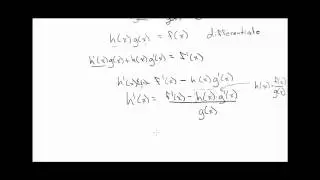 h(x)g(x) = f(x) differentiate
h'(x)g(x)+h(x)g'(x) = f'(x)
h'(x) f'(x) - h(x)g'(x)
h'(x) = f'(x) - h(x)·g'(x) / g(x)
h(x) = f(x)/g(x)